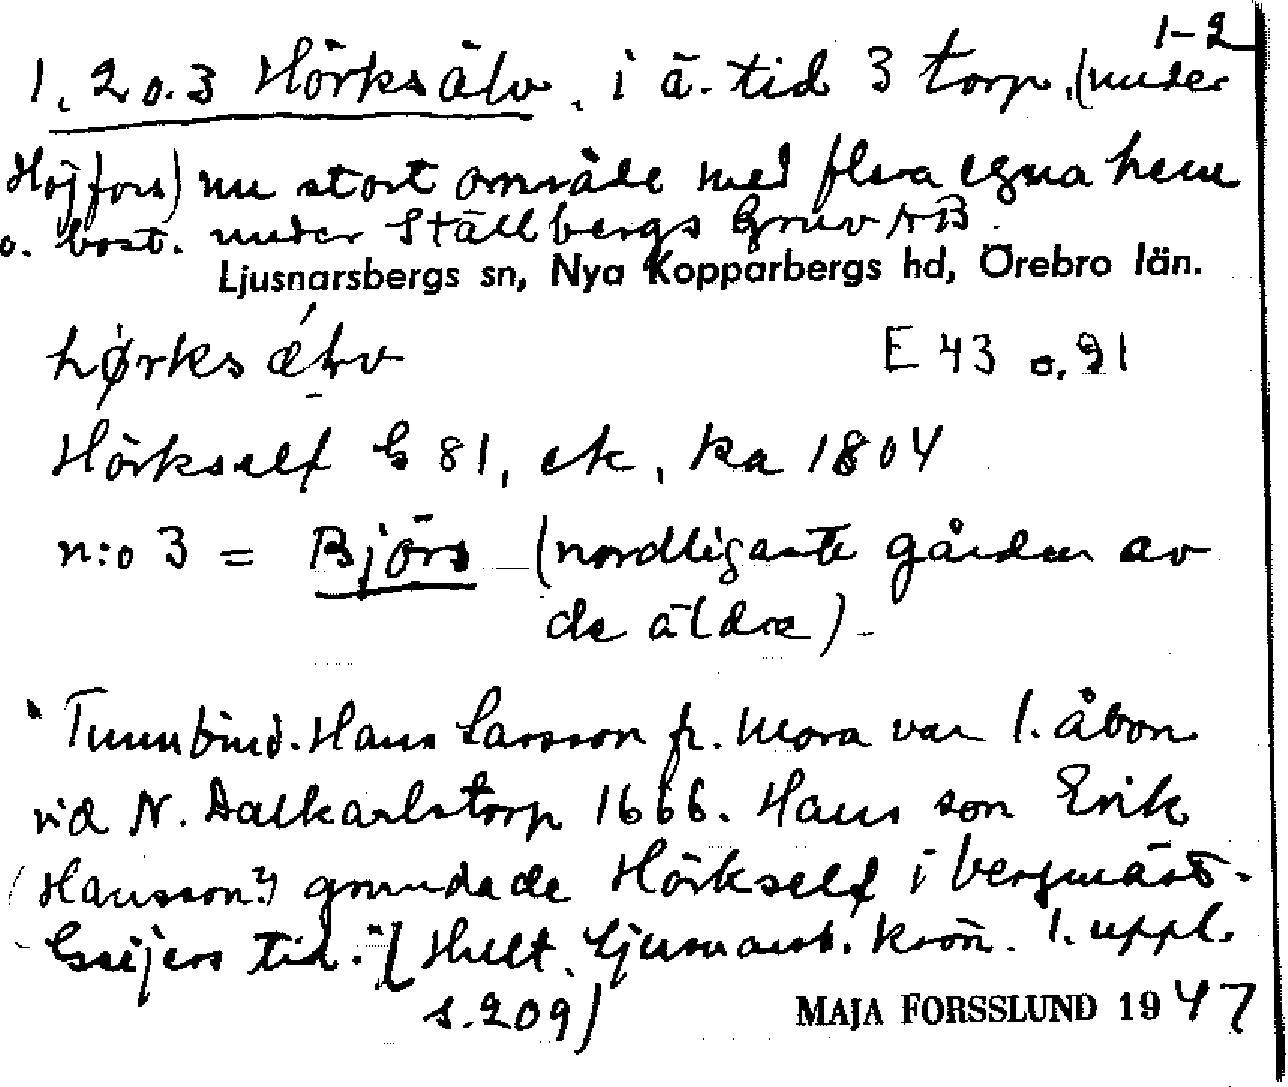 1-2
1, 2 o. 3 Hörksälv, i ä. tid 3 torp, (under
Höjfors) nu stort område med flera egna hem
o. bost. under Ställbergs Gruv AB.
Ljusnarsbergs sn, Nya Kopparbergs hd, Örebro län.
hørks ælv E 43 o. 91
Hörkself G 81, ek, ka 1804
n:o 3 = Björs (nordligaste gården av
de äldre)
"Tunnbind. Hans Larsson fr. Mora var 1. åbon
vid N. Dalkarlstorp 1666. Hans son Erik
(Hansson?) grundade Hörkself i bergmäst-
Geijers tid." (Hult. Ljusnarsb. krön. 1. uppl.
s. 209)
MAJA FORSSLUND 1947